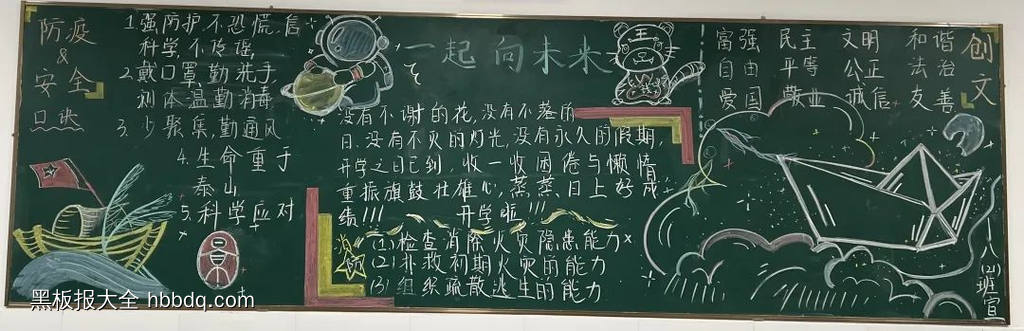 防疫
&
安全
口诀
1.强防护,不恐慌,信
科学不传谣
2.戴口罩,勤洗手
测体温勤消毒
3.少聚集,勤通风
4.生命重于
泰山
5.科学应对
一起向未来
王
没有不谢的花,没有不落的
日,没有不灭的灯光,没有永久的假期,
开学之日已到,收一收困倦与懒惰
重振旗鼓壮雄心,蒸蒸日上好成
绩!!! 开学啦!!!
消防
(1)检查消除火灾隐患能力
(2)扑救初期火灾的能力
(3)组织疏散逃生的能力
富强 民主 文明 和谐
自由 平等 公正 法治
爱国 敬业 诚信 友善
创文
八(2)班宣
黑板报大全 hbbdq.com